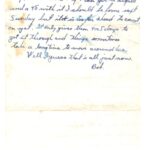 and a 45 with it I should be home next
Sunday but it is too far ahead to count
on yet. It only gives them 5 days to
get it through and things sometimes
take a long time to move around here.
Well I guess that is all just now.
Bob